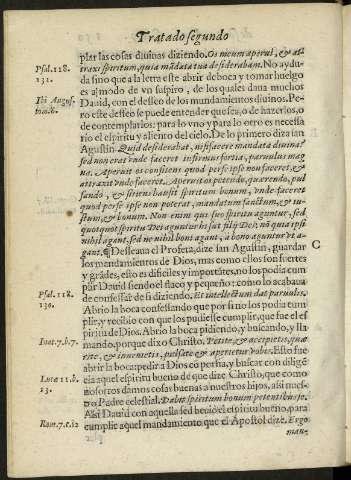 Tratado segundo
plar las cosas diuinas diziendo. Os meum aperui, & at-
Psal. 118. traxi spiritum, quia mãdata tua desiderabam. No ay du-
131. da sino que a la letra este abrir de boca y tomar huelgo
es al modo de vn suspiro, de los quales daua muchos
Ibi Augus- Dauid, con el desseo de los mandamientos diuinos. Pe-
ro este desseo se puede entender que sea, o de hazerlos, o
de contemplarlos: para lo vno y para lo otro es necessa
rio el espiritu y aliento del cielo. De lo primero diza ian
Agustin Quid desiderabat, nisi facere mandata diuina?
sed non erat vnde faceret infirmus fortia, paruulus mag
na. Aperuit os confitens quod per se ipse non faceret, &
attraxit vnde faceret. Aperuit os petendo, quærendo, pul
sando, & sitiens hausit spiritum bonum, vnde faceret
quod per se ipse non poterat, mandatum sanctum, & iu-
stum, & bonum. Non enim qui suo spiritu aguntur, sed
quotquot spiritu Dei aguntur hi sunt filij Dei; nõ quia ipsi
nihil agant, sed ne nihil boni agant, a bono aguntur vt a-
gant. ¶ Desseaua el Profeta, dize ian Agustin, guardar C
los mandamientos de Dios, mas como ellos son fuertes
y grãdes, esto es dificiles y importãtes, no los podia cum
plir Dauid siendo el flaco y pequeño: como lo acabaua
Psal. 118. de confessar de si diziendo. Et intellectum dat paruulis.
130. Abrio la boca confessando que por si no los podia cum
plir, y recibio con que los pudiesse cumplir, que fue el es
piritu de Dios. Abrio la boca pidiendo, y buscando, y lla
Ioan. 7. b. 7. mando, porque dixo Christo. Petite, & accipietis, quæ
rite, & inuenietis, pulsate & aperietur vobis. Esto fue
abrir la boca: pedir a Dios cõ porfia, y buscar con diligẽ
Lucæ 11. b. cia aquel espiritu bueno de que dize Christo, que como
13. nosotros damos cosas buenas a nuestros hijos, assi nues-
tro Padre celestial. Dabit spiritum bonum petentibus se.
Assi Dauid con aquella sed beuio el espiritu bueno, para
Rom. 7. c. 12 cumplir aquel mandamiento que el Apostol dize. Ergo
man-